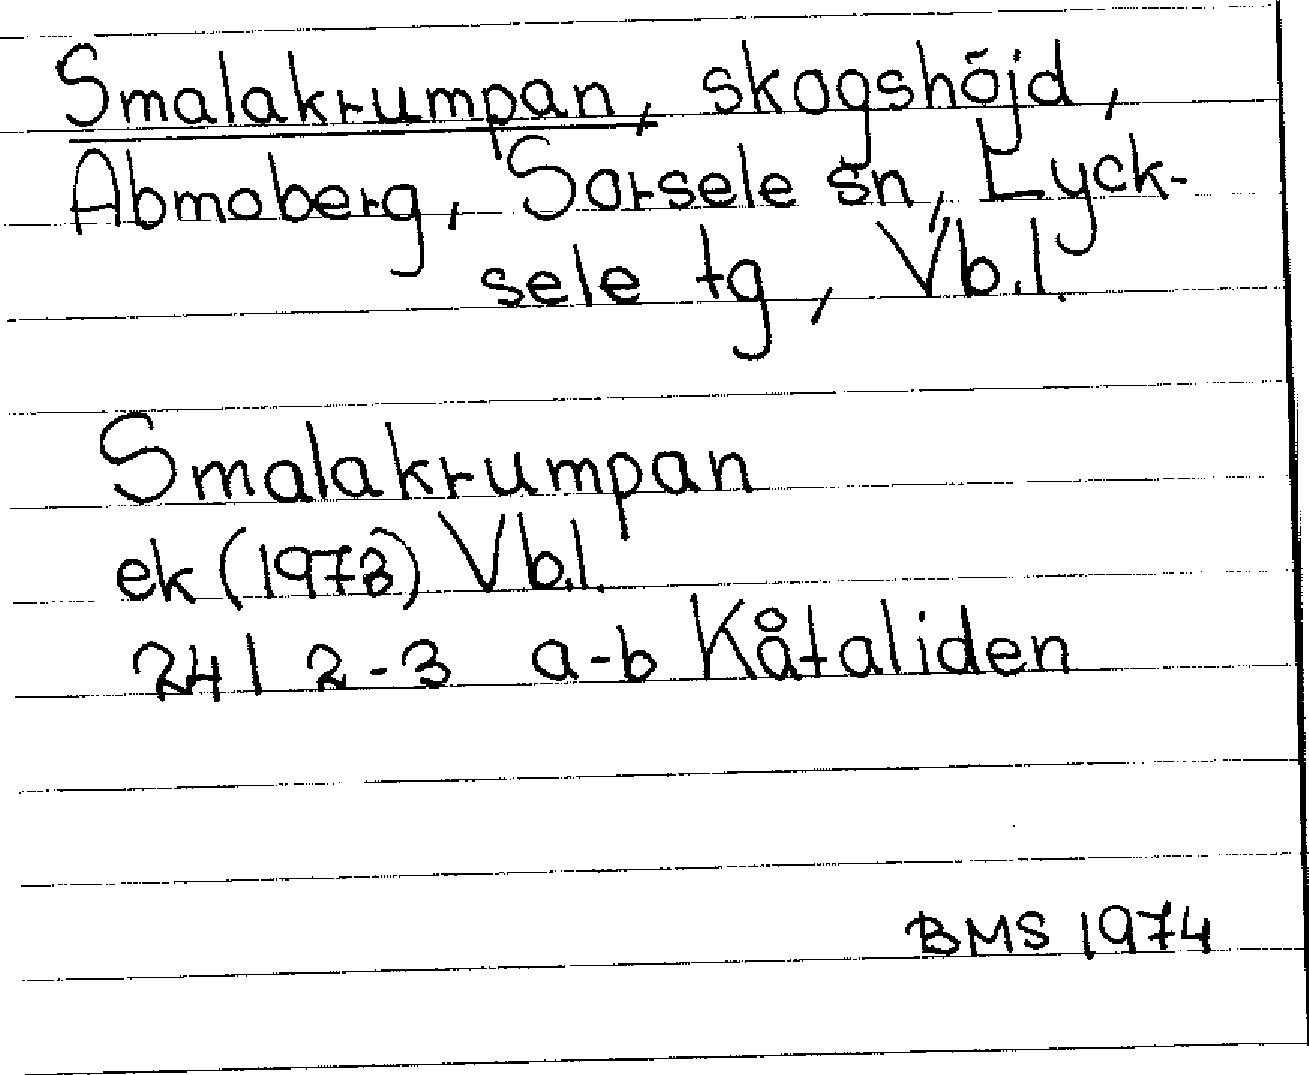 Smalakrumpan, skogshöjd,
Abmoberg, Sorsele sn, Lyck-
sele tg, Vb.l.
Smalakrumpan
ek (1973) Vb.l.
24 I 2-3 a-b Kåtaliden
BMS 1974